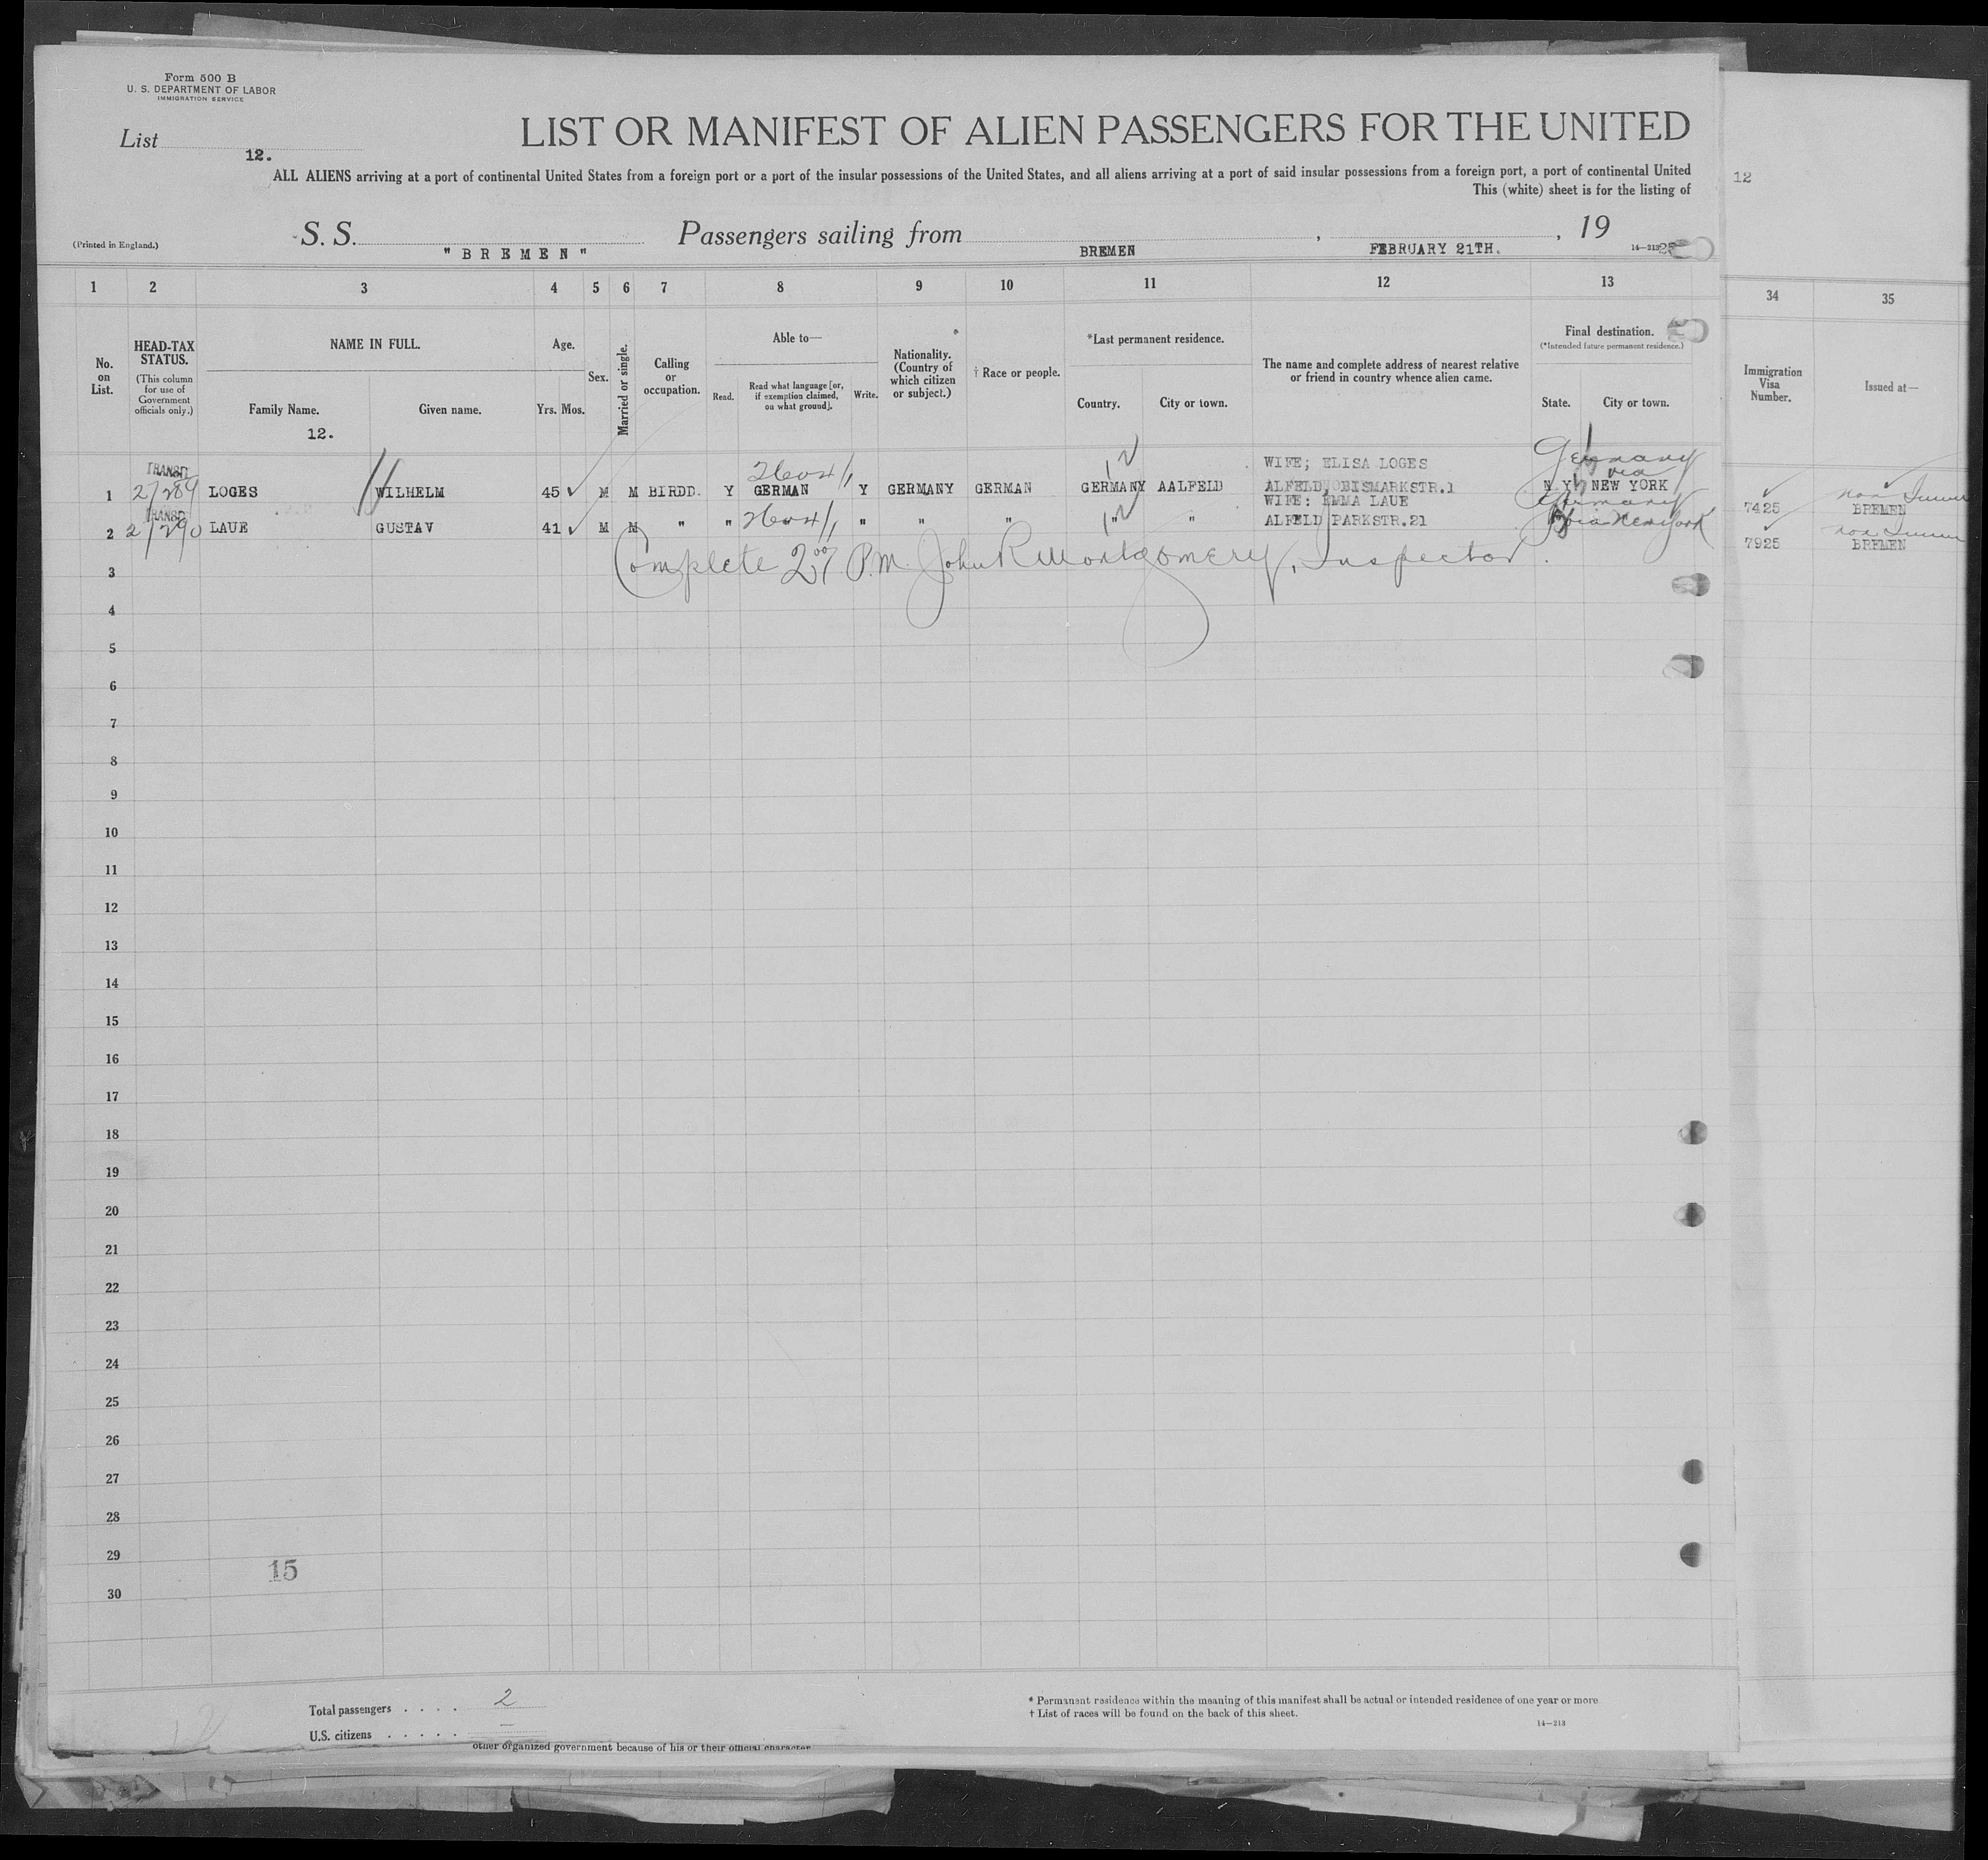 Form 500 B
U. S. DEPARTMENT OF LABOR
IMMIGRATION SERVICE
List 12.
LIST OR MANIFEST OF ALIEN PASSENGERS FOR THE UNITED
ALL ALIENS arriving at a port of continental United States from a foreign port or a port of the insular possessions of the United States, and all aliens arriving at a port of said insular possessions from a foreign port, a port of continental United
This (white) sheet is for the listing of
12
(Printed in England.)
S. S. "BREMEN" Passengers sailing from BREMEN, FEBRUARY 21TH., 19
14—213
1 2 3 4 5 6 7 8 9 10 11 12 13 34 35
No. on List.
HEAD-TAX STATUS.
(This column for use of Government officials only.)
NAME IN FULL.
Family Name. Given name.
12.
Age.
Yrs. Mos.
Sex.
Married or single.
Calling or occupation.
Able to—
Read. Read what language [or, if exemption claimed, on what ground]. Write.
Nationality. (Country of which citizen or subject.)
† Race or people.
*Last permanent residence.
Country. City or town.
The name and complete address of nearest relative or friend in country whence alien came.
Final destination.
(*Intended future permanent residence.)
State. City or town.
Immigration Visa Number.
Issued at—
TRANSIT
Germany
via
WIFE; ELISA LOGES
1 2/289 LOGES WILHELM 45 M M BIRDD. Y GERMAN Y GERMANY GERMAN GERMANY AALFELD ALFELD, BISMARKSTR.1 N.Y. NEW YORK 7425 BREMEN
TRANSIT
WIFE: EMMA LAUE
Germany
2 2/290 LAUE GUSTAV 41 M M " " " " " " " " ALFELD PARKSTR.21 via New York 7925 BREMEN
Complete 2 00 P.M. John R Montgomery, Inspector.
3
4
5
6
7
8
9
10
11
12
13
14
15
16
17
18
19
20
21
22
23
24
25
26
27
28
29
15
30
Total passengers . . . . 2
U.S. citizens . . . . . —
* Permanent residence within the meaning of this manifest shall be actual or intended residence of one year or more
† List of races will be found on the back of this sheet.
14—213
other organized government because of his or their official character